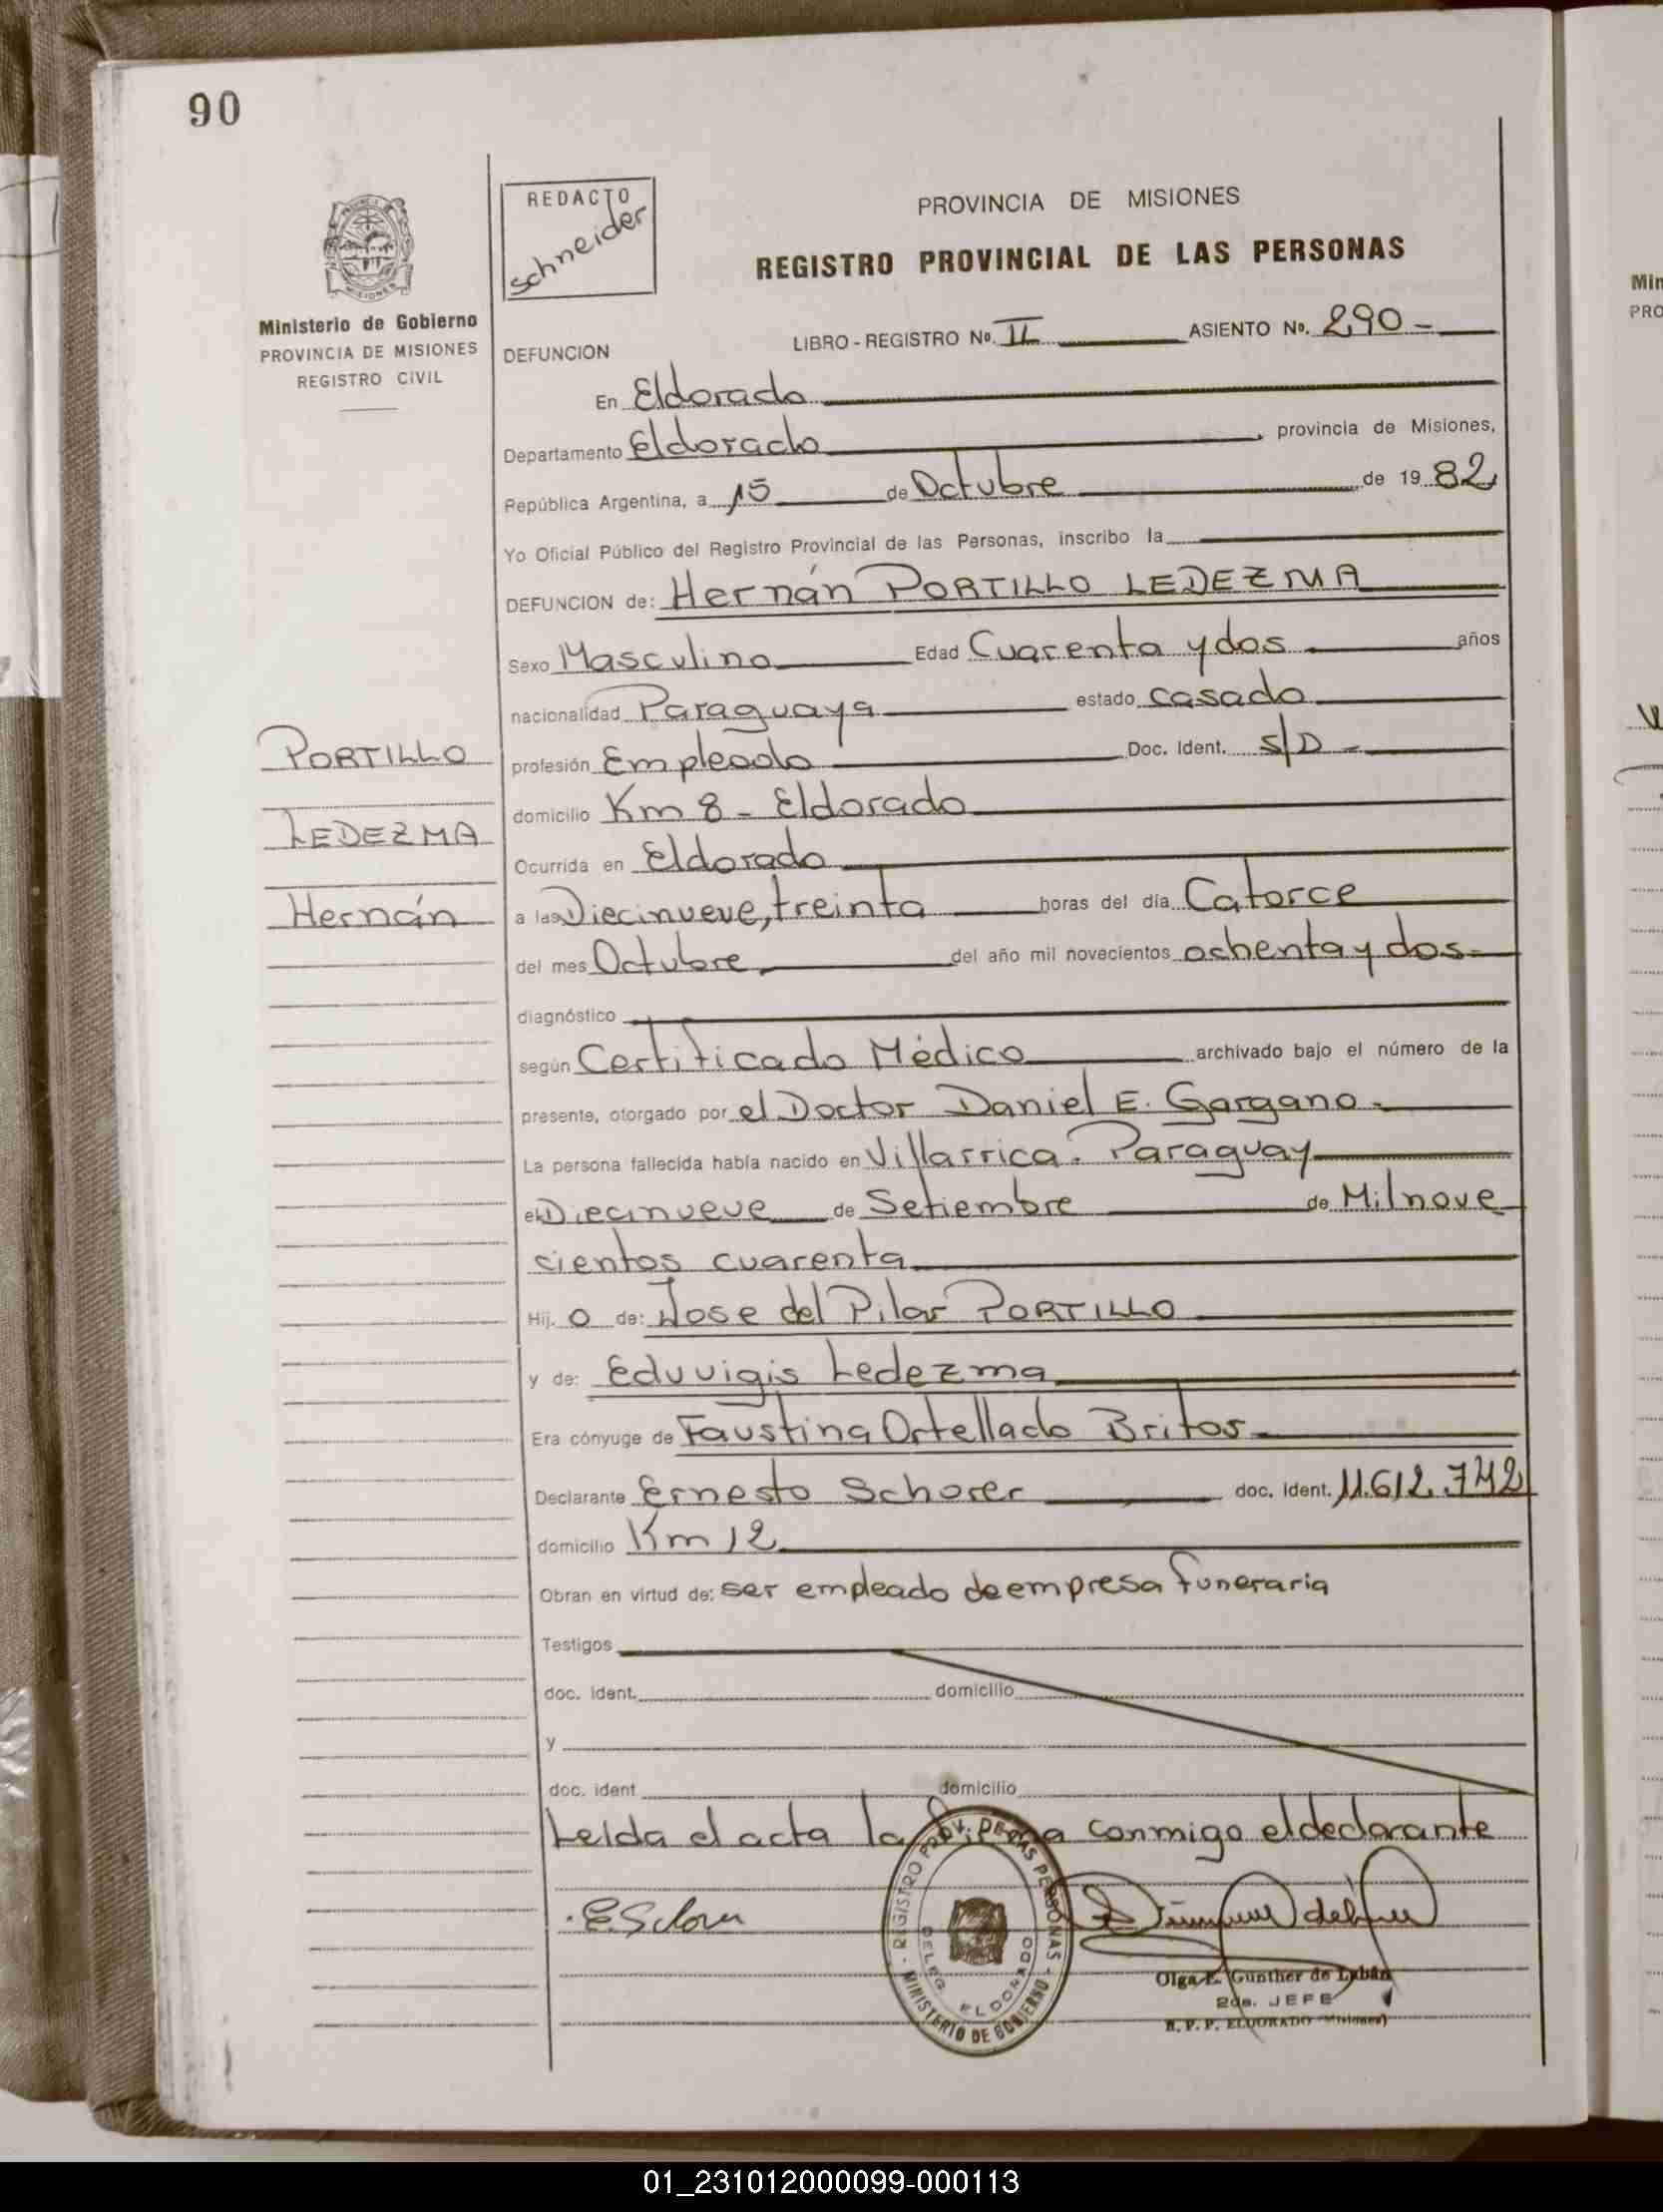 90
REDACTO
Schneider
PROVINCIA DE MISIONES
REGISTRO PROVINCIAL DE LAS PERSONAS
Ministerio de Gobierno
PROVINCIA DE MISIONES
REGISTRO CIVIL
LIBRO - REGISTRO No. II ASIENTO No. 290 -
DEFUNCION
En Eldorado
Departamento Eldorado, provincia de Misiones,
República Argentina, a 15 de Octubre de 19 82
Yo Oficial Público del Registro Provincial de las Personas, inscribo la
DEFUNCION de: Hernán PORTILLO LEDEZMA
Sexo Masculino Edad Cuarenta y dos años
nacionalidad Paraguaya estado casado
PORTILLO
LEDEZMA
Hernán
profesión Empleado Doc. Ident. S/D -
domicilio Km 8 - Eldorado
Ocurrida en Eldorado
a las Diecinueve, treinta horas del día Catorce
del mes Octubre del año mil novecientos ochenta y dos
diagnóstico
según Certificado Médico archivado bajo el número de la
presente, otorgado por el Doctor Daniel E. Gargano.
La persona fallecida había nacido en Villarrica. Paraguay
el Diecinueve de Setiembre de Milnove
cientos cuarenta
Hij o de: Jose del Pilar PORTILLO
y de: Eduvigis Ledezma
Era cónyuge de Faustina Ortellado Britos
Declarante Ernesto Schorer doc. Ident. 11.612.742
domicilio Km 12
Obran en virtud de: ser empleado de empresa funeraria
Testigos
doc. ident. domicilio
y
doc. ident domicilio
Leida el acta la firma conmigo el declarante
REGISTRO PROV. DE LAS PERSONAS - MINISTERIO DE GOBIERNO
DELEG. ELDORADO
Olga E. Gunther de
2da. JEFE
R. P. P. ELDORADO (Misiones)
Min
PRO
01_231012000099-000113